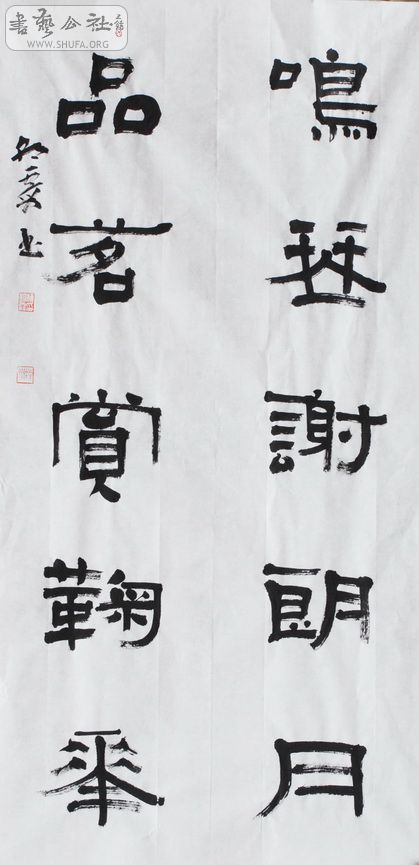 鳴琴謝朗月
品茗賞鞠華
書藝公社
www.SHUFA.ORG